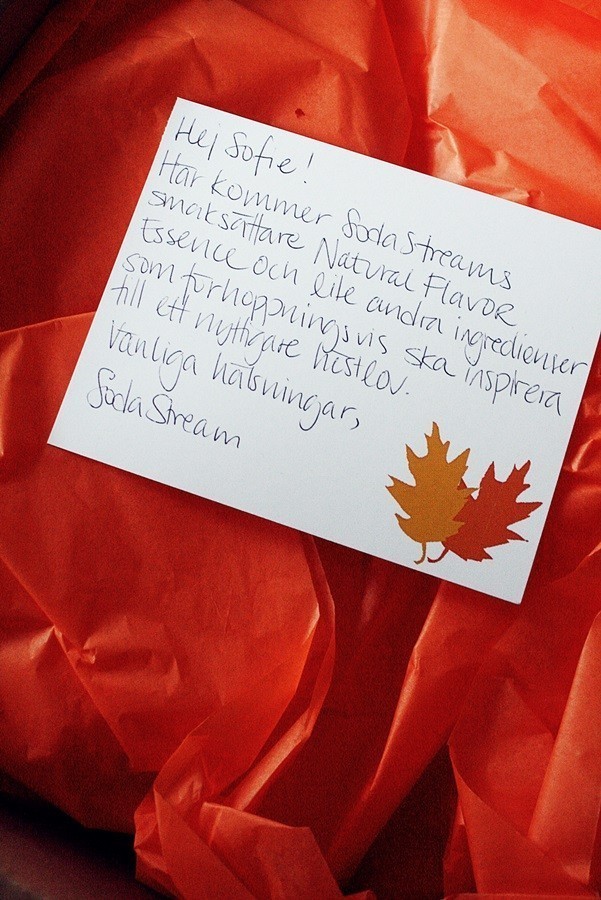 Hej Sofie!
Här kommer SodaStreams
smaksättare Natural Flavor
Essence och lite andra ingredienser
som förhoppningsvis ska inspirera
till ett nyttigare höstlov.
Vänliga hälsningar,
SodaStream